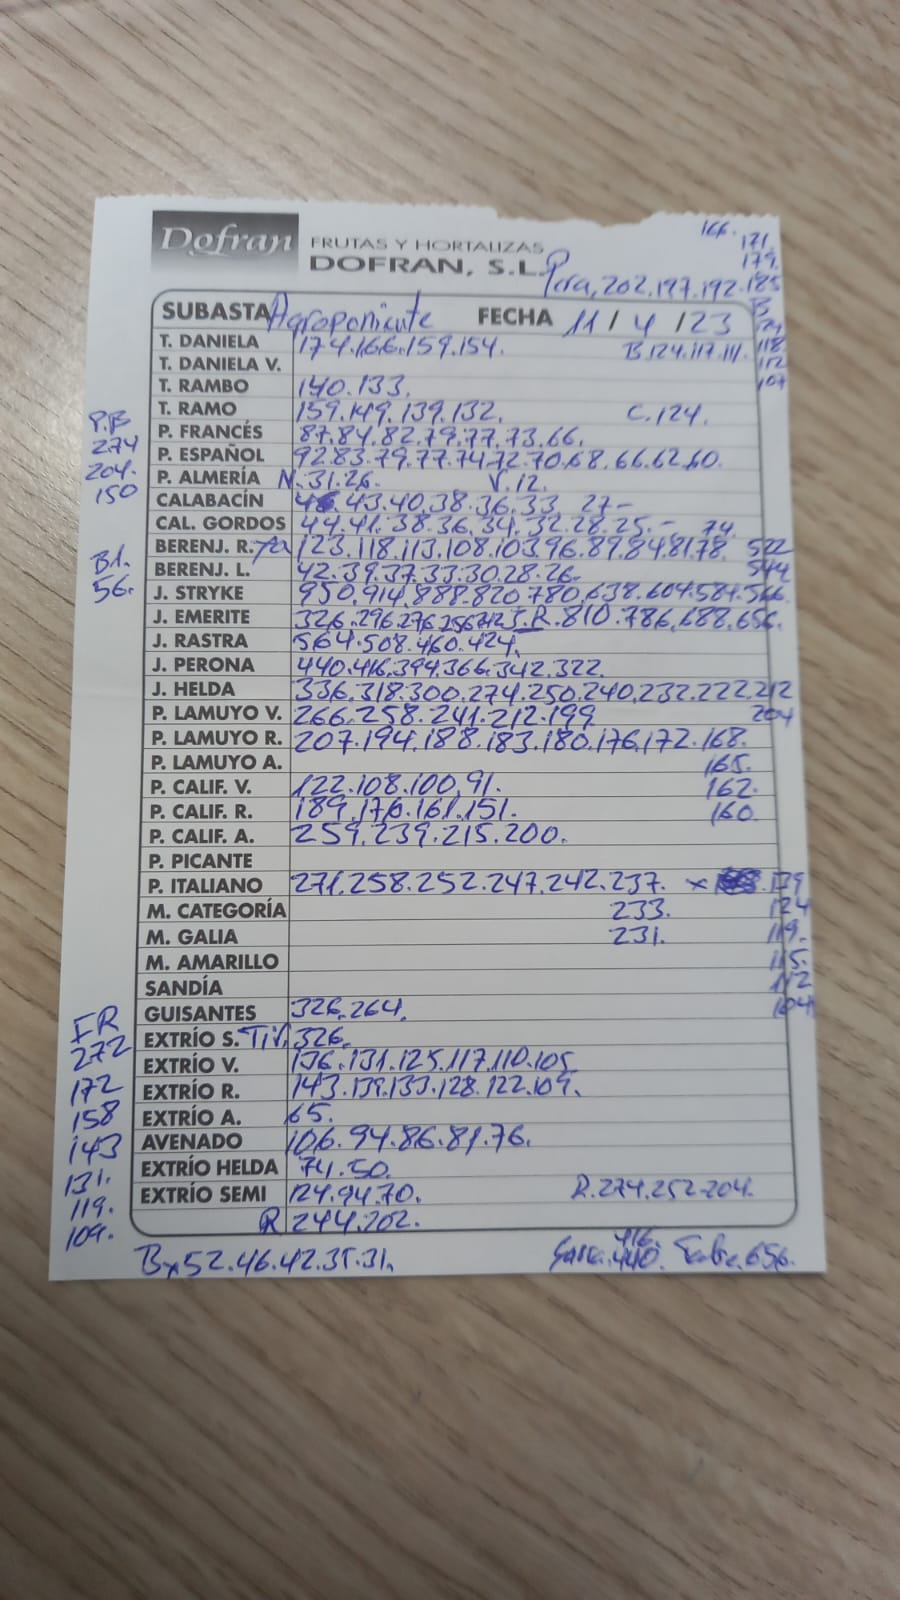 Dofran FRUTAS Y HORTALIZAS
DOFRAN, S.L.
166.
171.
179.
Pera, 202.197.192.185
SUBASTA Agroponiente FECHA 11/4/23
B
118
112
107
T. DANIELA 174.166.159.154. B.124.117.111.
T. DANIELA V.
T. RAMBO 140.133.
T. RAMO 159.149.139.132. C.124.
P. FRANCÉS 87.84.82.79.77.73.66.
P. ESPAÑOL 92.83.79.77.74.72.70.68.66.62.60.
P. ALMERÍA N.31.26. V.12.
CALABACÍN 43.40.38.36.33 27-
CAL. GORDOS 44.41.38.36.34.32.28.25.- 74.
BERENJ. R. 123.118.113.108.103.96.89.84.81.78. 522
BERENJ. L. 42.39.37.33.30.28.26. 544
J. STRYKE 950.914.888.820.780.638.604.584.566.
J. EMERITE 326.296.276.256. J.R.810.786.688.656.
J. RASTRA 564.508.460.424.
J. PERONA 440.416.394.366.342.322.
J. HELDA 336.318.300.274.250.240.232.222.212
204
P. LAMUYO V. 266.258.241.212.199
P. LAMUYO R. 207.194.188.183.180.176.172.168.
P. LAMUYO A. 165.
P. CALIF. V. 122.108.100.91. 162.
P. CALIF. R. 189.176.161.151. 160.
P. CALIF. A. 259.239.215.200.
P. PICANTE
P. ITALIANO 271.258.252.247.242.237. x .139
M. CATEGORÍA 233. 124
M. GALIA 231. 119.
M. AMARILLO 115.
SANDÍA 112
GUISANTES 326.264. 104
EXTRÍO S. Tir. 326.
EXTRÍO V. 136.131.125.117.110.105.
EXTRÍO R. 143.139.133.128.122.109.
EXTRÍO A. 65.
AVENADO 106.94.86.81.76.
EXTRÍO HELDA 74.50.
EXTRÍO SEMI 124.94.70. R.274.252.204.
R 244.202.
416.
Bx52.46.42.35.31. 440. 656.
P.B
274
204.
150
B1.
56.
FR
272
172
158
143
131.
119.
109.